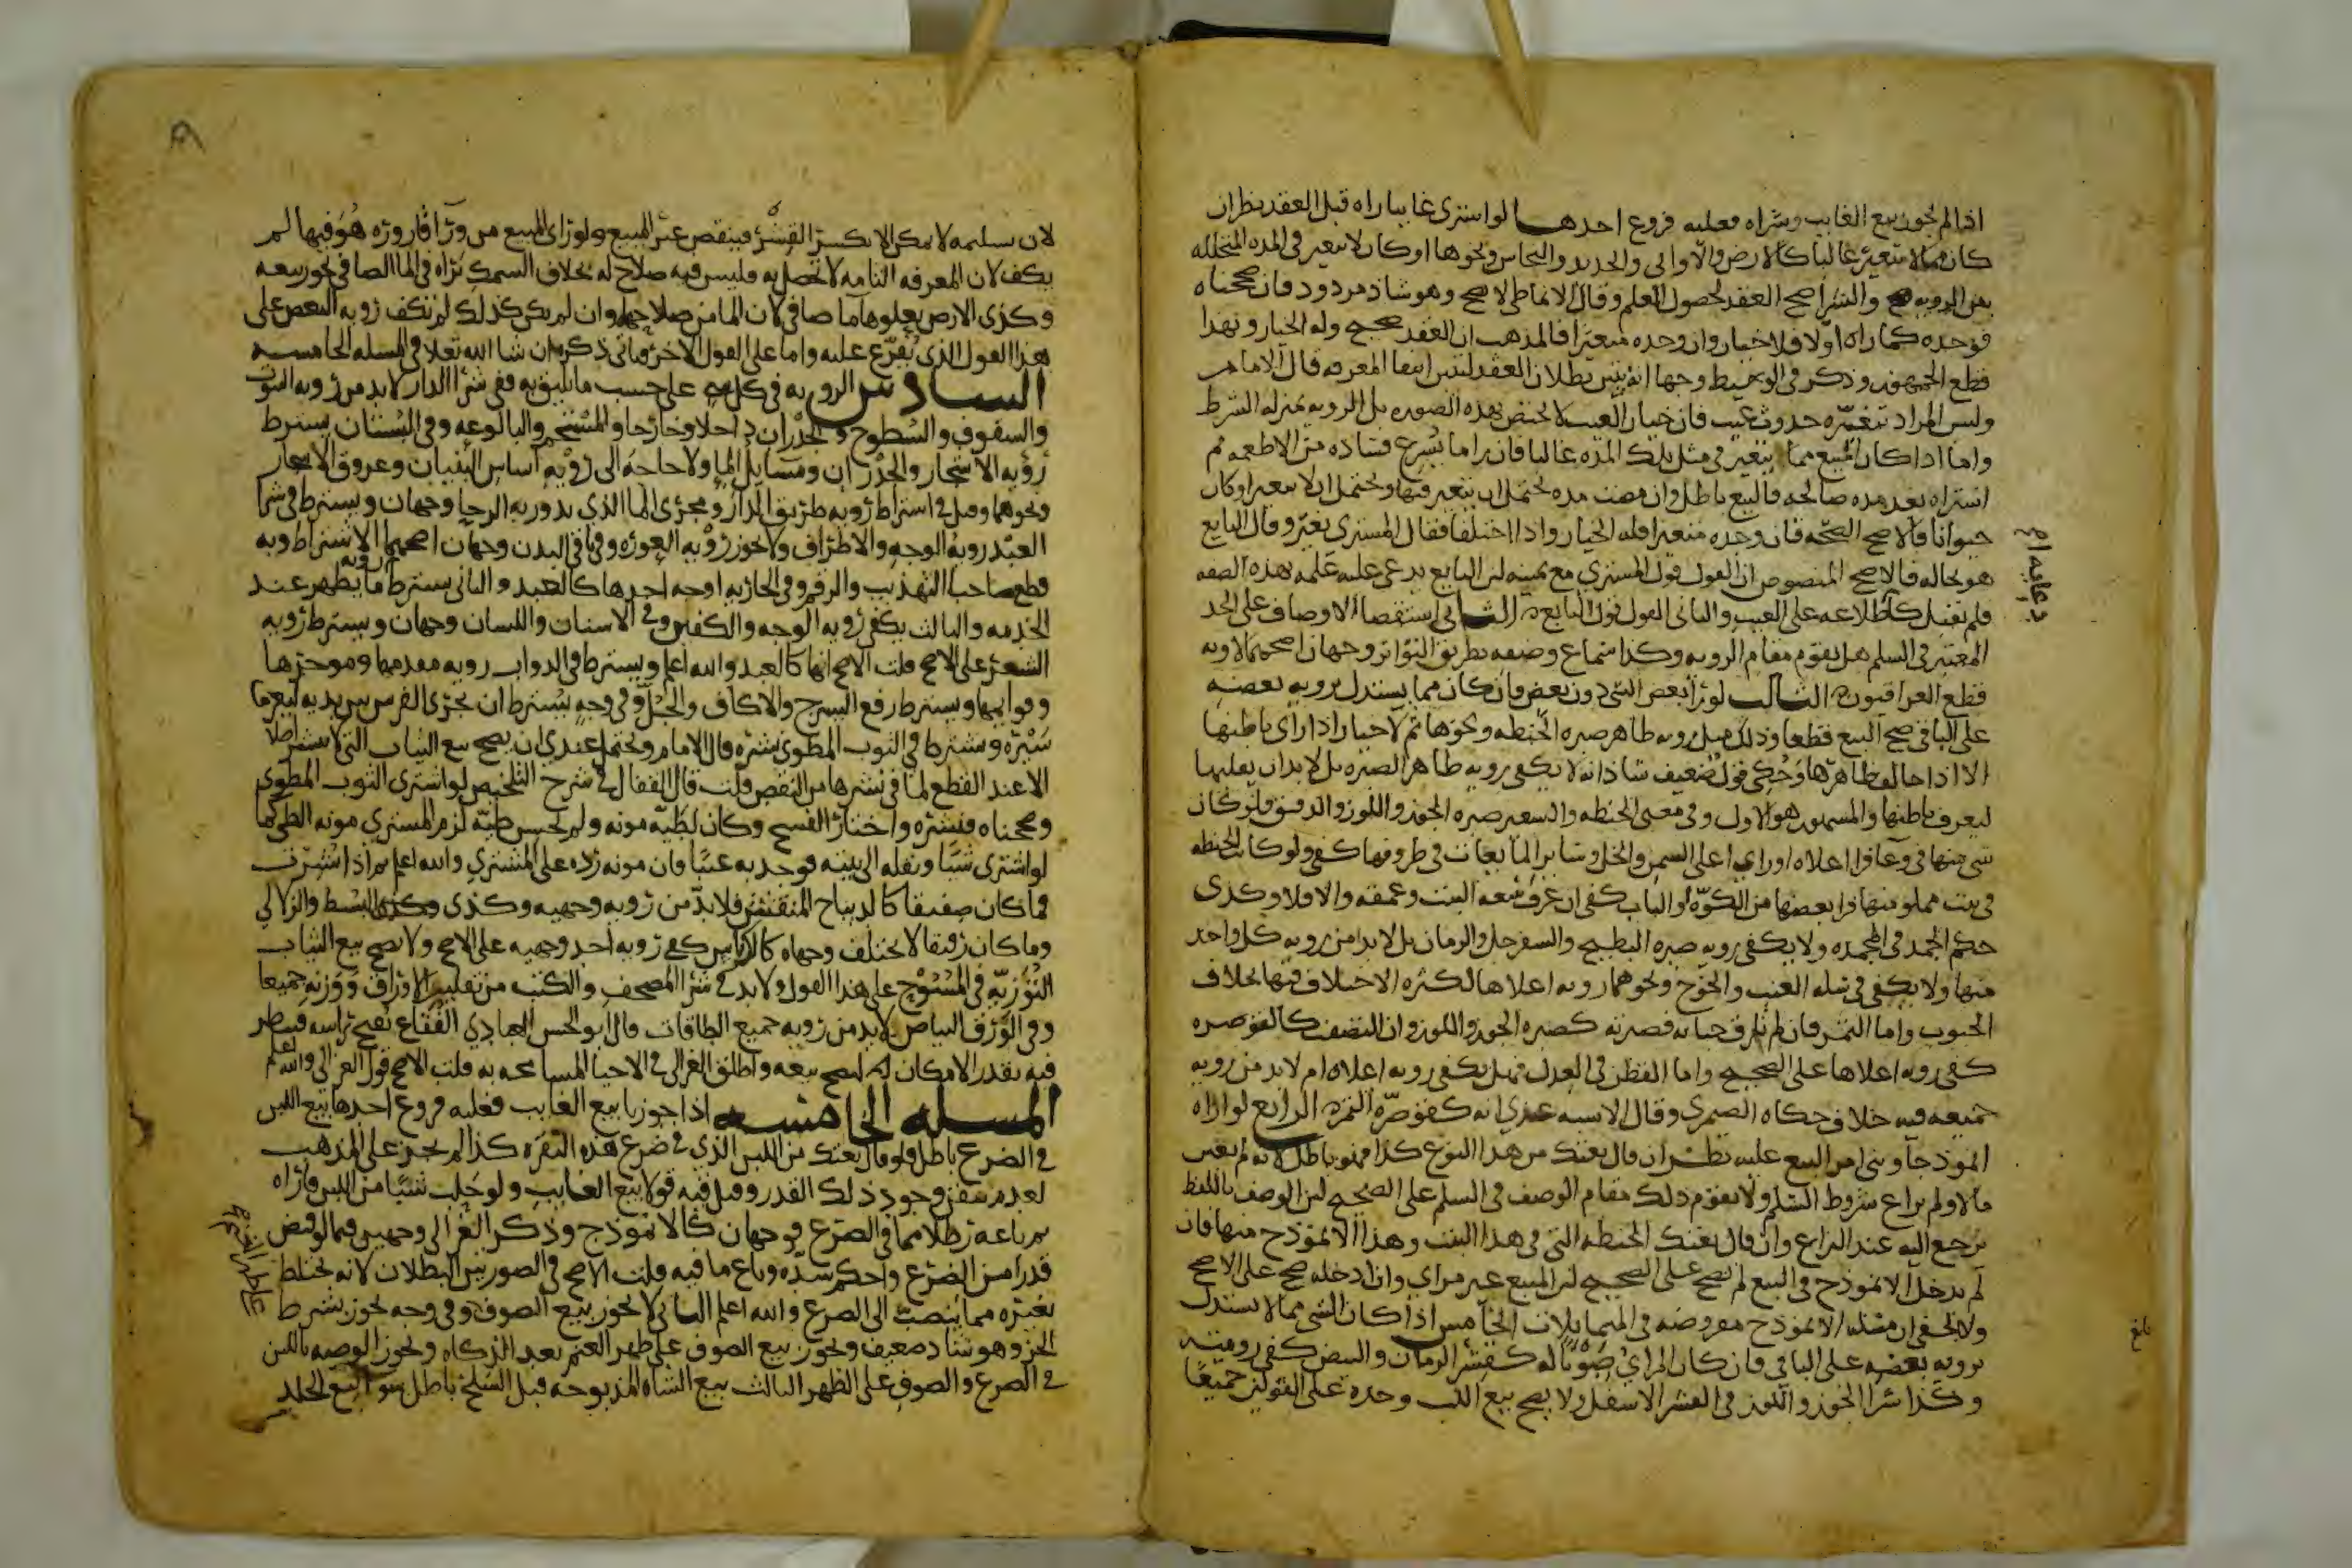 اذا لم يجوز بيع الغايب وشراه فعليه فروع احدها لو اشترى غايبا راه قبل العقد نظر ان
كان مما لا يتغير غالبا كالارض والاواني والحديد والنحاس ونحوها او كان لا يتغير في المده المتخلله
بين الرويه والشرا صح العقد لحصول العلم وقال الانماطي لا يصح وهو شاذ مردود فان صححناه
فوجده كما راه اولا فلا خيار وان وجده متغيرا فالمذهب ان العقد صحيح وله الخيار وبهذا
قطع الجمهور وذكر في الوسيط وجها انه يتبين بطلان العقد لتبين انتفا المعرفه قال الامام
وليس المراد بتغيره حدوث عيب فان خيار العيب لا يختص بهذه الصوره بل الرويه بمنزله الشرط
واما اذا كان المبيع مما يتغير في مثل تلك المده غالبا فان راى ما يسرع فساده من الاطعمه ثم
اشتراه بعد مده صالحه فالبيع باطل وان مضت مده يحتمل ان يتغير فيها ويحتمل ان لا يتغير او كان
حيوانا فالاصح الصحه فان وجده متغيرا فله الخيار واذا اختلفا فقال المشتري تغير وقال البايع
هو بحاله فالاصح المنصوص ان القول قول المشتري مع يمينه لان البايع يدعي عليه علمه بهذه الصفه
فلم يقبل كاطلاعه على العيب والثاني القول قول البايع الثاني استقصا الاوصاف على الحد
المعتبر في السلم هل يقوم مقام الرويه وكذا سماع وصفه بطريق التواتر وجهان اصحهما لا وبه
قطع العراقيون الثالث لو راى بعض الشي دون بعض فان كان مما يستدل برويه بعضه
على الباقي صح البيع قطعا وذلك مثل رويه ظاهر صبره الحنطه ونحوها ثم لا خيار اذا راى باطنها
الا اذا خالف ظاهرها وحكي قول ضعيف شاذ انه لا يكفي رويه ظاهر الصبره بل لا بد ان يقلبها
ليعرف باطنها والمشهور هو الاول وفي معنى الحنطه والشعير صبره الجوز واللوز والدقيق فلو كان
شي منها في وعا فراى اعلاه او راى اعلى السمن والخل وساير المايعات في ظروفها كفى ولو كانت الحنطه
في بيت مملو منها فراى بعضها من الكوه او الباب كفى ان عرف سعه البيت وعمقه والا فلا وكذى
حكم الجمد في المجمده ولا يكفي رويه صبره البطيخ والسفرجل والرمان بل لا بد من رويه كل واحد
منها ولا يكفي في سله العنب والخوخ ونحوهما رويه اعلاها لكثره الاختلاف فيها بخلاف
الحبوب واما التمر فان لم تلزق حباته فصبرته كصبره الجوز واللوز وان التصقت كالقوصره
كفى رويه اعلاها على الصحيح واما القطن في العدل فهل يكفي رويه اعلاه ام لا بد من رويه
جميعه فيه خلاف حكاه الصيمري وقال الاشبه عندي انه كقوصره التمر الرابع لو اراه
انموذجا وبنى امر البيع عليه نظر ان قال بعتك من هذا النوع كذا فهو باطل لانه لم يعين
مالا ولم يراع شروط السلم ولا يقوم ذلك مقام الوصف في السلم على الصحيح لان الوصف باللفظ
يرجع اليه عند النزاع وان قال بعتك الحنطه التي في هذا البيت وهذا الانموذج منها فان
لم يدخل الانموذج في البيع لم يصح على الصحيح لان المبيع غير مراي وان ادخله صح على الاصح
ولا يخفى ان مسله الانموذج مفروضه في المتماثلات الخامس اذا كان الشي مما لا يستدل
برويه بعضه على الباقي فان كان المراي صوانا له كقشر الرمان والبيض كفى رويته
وكذا شرا الجوز واللوز في القشر الاسفل ولا يصح بيع اللب وحده على القولين جميعا
بلغ
لان تسليمه لا يمكن الا بكسر القشر فينقص عين المبيع ولو راى المبيع من ورا قاروره هو فيها لم
يكف لان المعرفه التامه لا تحصل به وليس فيه صلاح له بخلاف السمك يراه في الما الصافي يجوز بيعه
وكذى الارض يعلوها ما صافي لان الما من صلاحها وان لم يكن كذلك لم تكف رويه البعض على
هذا القول الذي نفرع عليه واما على القول الاخر فياتي ذكره ان شا الله تعالى في المسله الخامسه
السادس الرويه في كل شي على حسب ما يليق به ففي شرا الدار لا بد من رويه البيوت
والسقوف والسطوح والجدران داخلا وخارجا والمستحم والبالوعه وفي البستان يشترط
رويه الاشجار والجدران ومسايل الما ولا حاجه الى رويه اساس البنيان وعروق الاشجار
ونحوهما وقيل في اشتراط رويه طريق الدار ومجرى الما الذي يدور به الرحا وجهان ويشترط في شرا
العبد رويه الوجه والاطراف ولا يجوز رويه العوره وفي باقي البدن وجهان اصحهما الاشتراط وبه
قطع صاحبا التهذيب والرقم وفي الجاريه اوجه احدها كالعبد والثاني يشترط رويه ما يظهر عند
الخدمه والثالث يكفي رويه الوجه والكفين وفي الاسنان واللسان وجهان ويشترط رويه
الشعر على الاصح قلت الاصح انها كالعبد والله اعلم ويشترط في الدواب رويه مقدمها وموخرها
وقوايمها ويشترط رفع السرج والاكاف والجل وفي وجه يشترط ان يجرى الفرس بين يديه ليعرف
سيره ويشترط في الثوب المطوي نشره قال الامام ويحتمل عندي ان يصح بيع الثياب التي لا تنشر اصلا
الا عند القطع لما في نشرها من النقص قلت قال القفال في شرح التلخيص لو اشترى الثوب المطوي
وصححناه فنشره واختار الفسخ وكان لطيه مونه ولم يحسن طيه لزم المشتري مونه الطي كما
لو اشترى شيا ونقله الى بيته فوجد به عيبا فان مونه رده على المشتري والله اعلم ثم اذا نشرت
فما كان صفيقا كالديباج المنقش فلا بد من رويه وجهيه وكذى البسط والزلالي
وما كان رقيقا لا يختلف وجهاه كالكرباس كفى رويه احد وجهيه على الاصح ولا يصح بيع الثياب
التوزيه في المسوح على هذا القول ولا بد في شرا المصحف والكتب من تقليب الاوراق ورويه جميعا
وفي الورق البياض لا بد من رويه جميع الطاقات قال ابو الحسن العبادي الفقاع يفتح راسه فينظر
فيه بقدر الامكان ليصح بيعه واطلق الغزالي في الاحيا المسامحه به قلت الاصح قول الغزالي والله اعلم
المسله الخامسه اذا جوزنا بيع الغايب فعليه فروع احدها بيع اللبن
في الضرع باطل فلو قال بعتك من اللبن الذي في ضرع هذه البقره كذا لم يجز على المذهب
لعدم تيقن وجود ذلك القدر وقيل فيه قولا بيع الغايب ولو حلب شيا من اللبن فاراه
ثم باعه رطلا مما في الضرع فوجهان كالانموذج وذكر الغزالي وجهين فيما لو قبض
قدرا من الضرع واحكم شده وباع ما فيه قلت الاصح في الصورتين البطلان لانه يختلط
بغيره مما ينصب الى الضرع والله اعلم الثاني لا يجوز بيع الصوف وفي وجه يجوز بشرط
الجز وهو شاذ ضعيف ويجوز بيع الصوف على ظهر الغنم بعد الذكاه وتجوز الوصيه باللبن
في الضرع والصوف على الظهر الثالث بيع الشاه المذبوحه قبل السلخ باطل سوا بيع الجلد